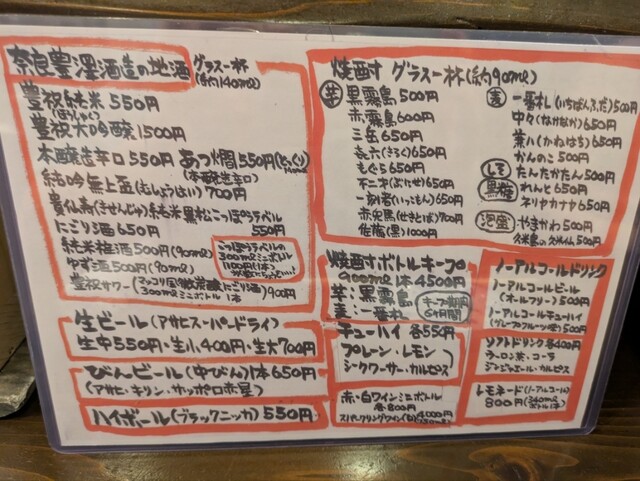 奈良豊澤酒造の地酒 グラス一杯(約140ml)
豊祝純米 550円
(ほうしゅく)
豊祝大吟醸 1500円
本醸造辛口 550円 あつ燗 550円(とっくり)
(本醸造辛口)
純吟無上盃(むしょうはい)700円
貴仙寿(きせんじゅ)純米黒松こっぽりラベル 550円
にごり酒 650円
純米梅酒 500円(90ml)
ゆず酒 500円(90ml)
300mlミニボトル
1100円(1本)
豊祝サワー(マッコリ風微炭酸にごり酒)900円
300mlミニボトル 1本
生ビール(アサヒスーパードライ)
生中550円・生小400円・生大700円
びんビール(中びん)1本650円
(アサヒ・キリン・サッポロ赤星)
ハイボール(ブラックニッカ)550円
焼酎 グラス一杯(約90ml)
芋 黒霧島 500円
赤霧島 600円
三岳 650円
㐂六(きろく)650円
もぐら 650円
不二才(ぶにせ)650円
一刻者(いっこもん)650円
赤兎馬(せきとば)700円
佐藤(黒)1000円
麦 一番札(いちばんふだ)500円
中々(なかなか)650円
兼八(かねはち)650円
かんのこ 500円
しそ たんたかたん 500円
黒糖 れんと 650円
ネリヤカナヤ 650円
泡盛 やまかわ 500円
久米島の久米仙 500円
焼酎ボトルキープ
900ml 1本 4500円
芋:黒霧島
麦:一番札
キープ期間
6ヶ月間
チューハイ 各550円
プレーン・レモン
シークワーサー・カルピス
赤・白ワインミニボトル
各800円
スパークリングワイン(白)4000円
ノーアルコールドリンク
ノーアルコールビール
(オールフリー)500円
ノーアルコールチューハイ
(グレープフルーツ味)500円
ソフトドリンク各400円
ウーロン茶・コーラ
ジンジャエール・カルピス
レモネード(ノーアルコール)
800円(340ml ボトル1本)